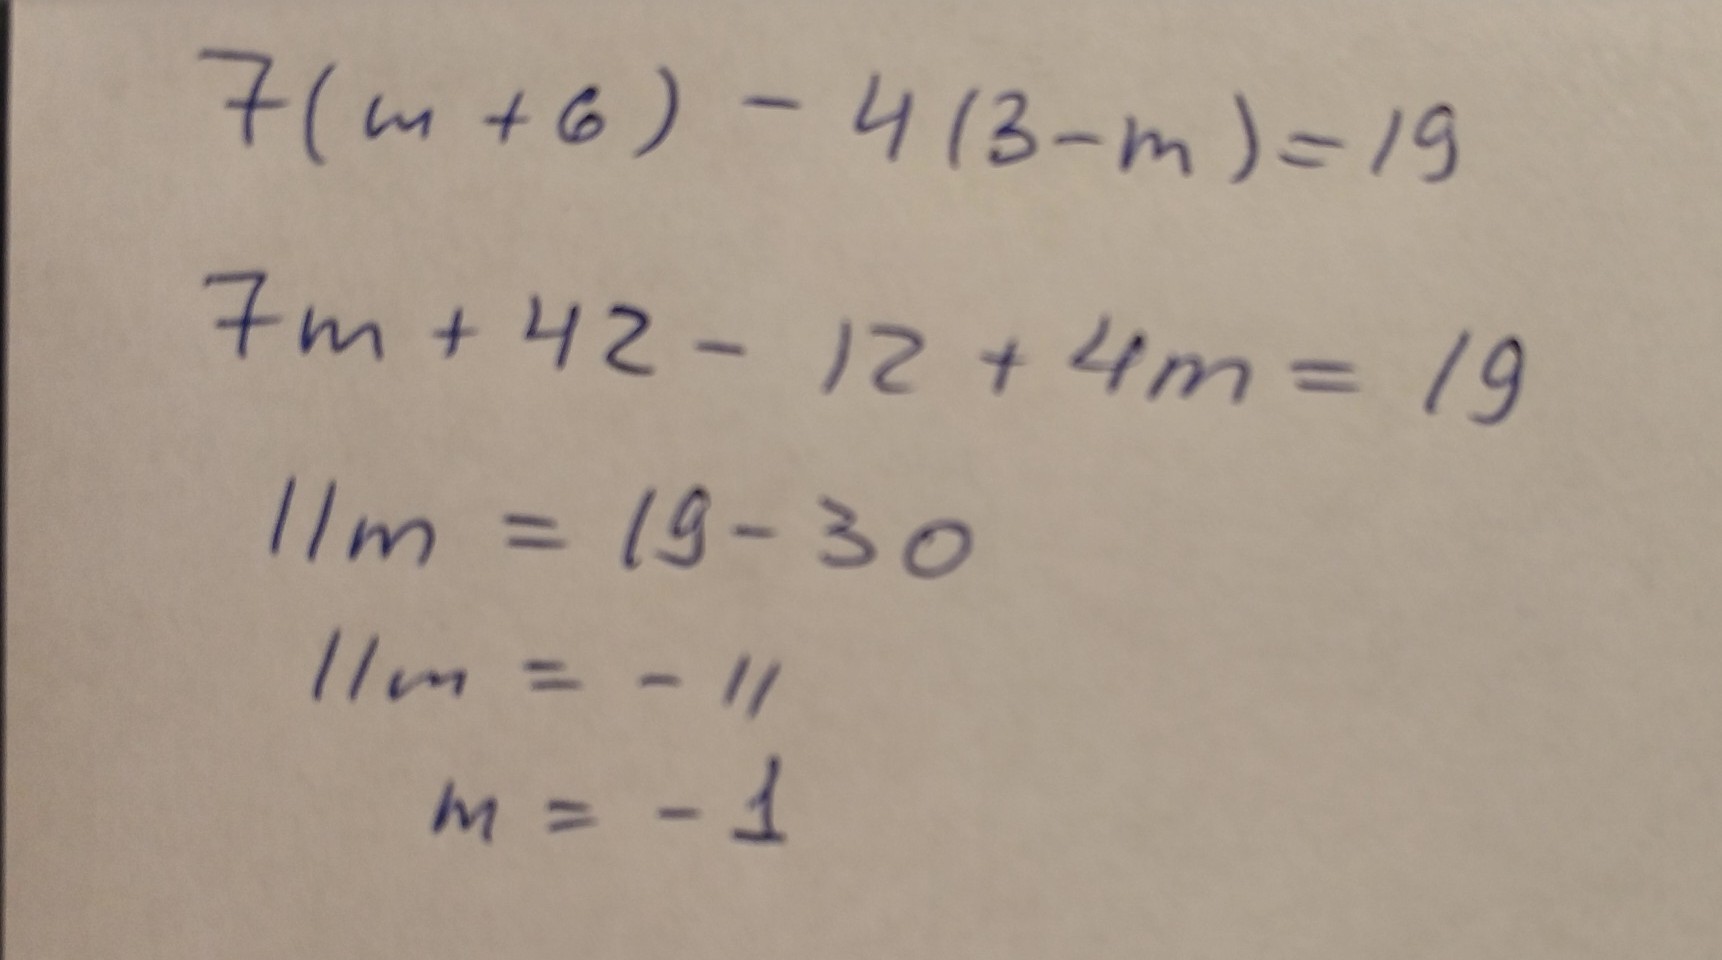 7(m+6) - 4(3-m)=19
7m + 42 - 12 + 4m = 19
11m = 19-30
11m = - 11
m = - 1